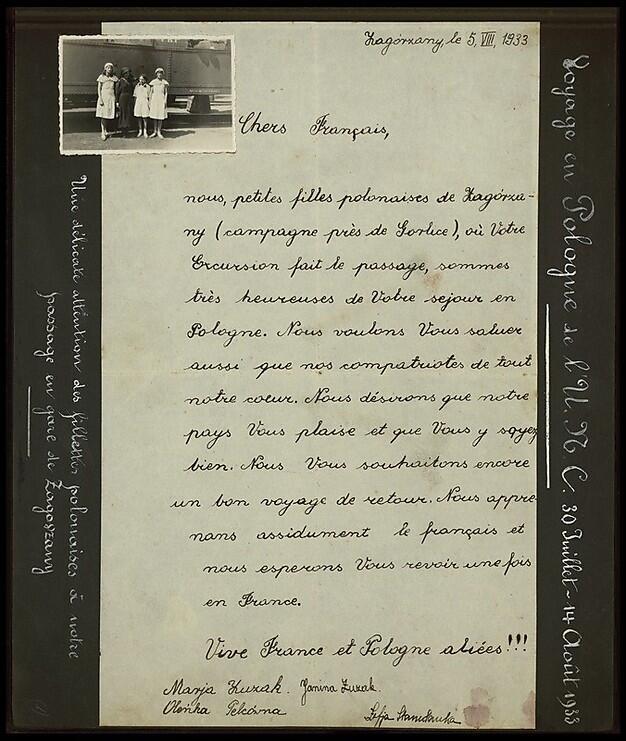 Zagórzany, le 5, VIII, 1933
Chers Français,
nous, petites filles polonaises de Zagórza-
ny (campagne près de Gorlice), où Votre
Excursion fait le passage, sommes
très heureuses de Votre sejour en
Pologne. Nous voulons Vous saluer
aussi que nos compatriotes de tout
notre coeur. Nous désirons que notre
pays Vous plaise et que Vous y soyez
bien. Nous Vous souhaitons encore
un bon voyage de retour. Nous appre-
nans assidument le français et
nous esperons Vous revoir une fois
en France.
Vive France et Pologne aliées!!!
Marja Kuzak. Janina Zuzak.
Oleńka Pelcówna
Zofja
Voyage en Pologne de l'U.N.C. 30 Juillet - 14 Août 1933
Une délicate attention des fillettes polonaises à notre
passage en gare de Zagoszany